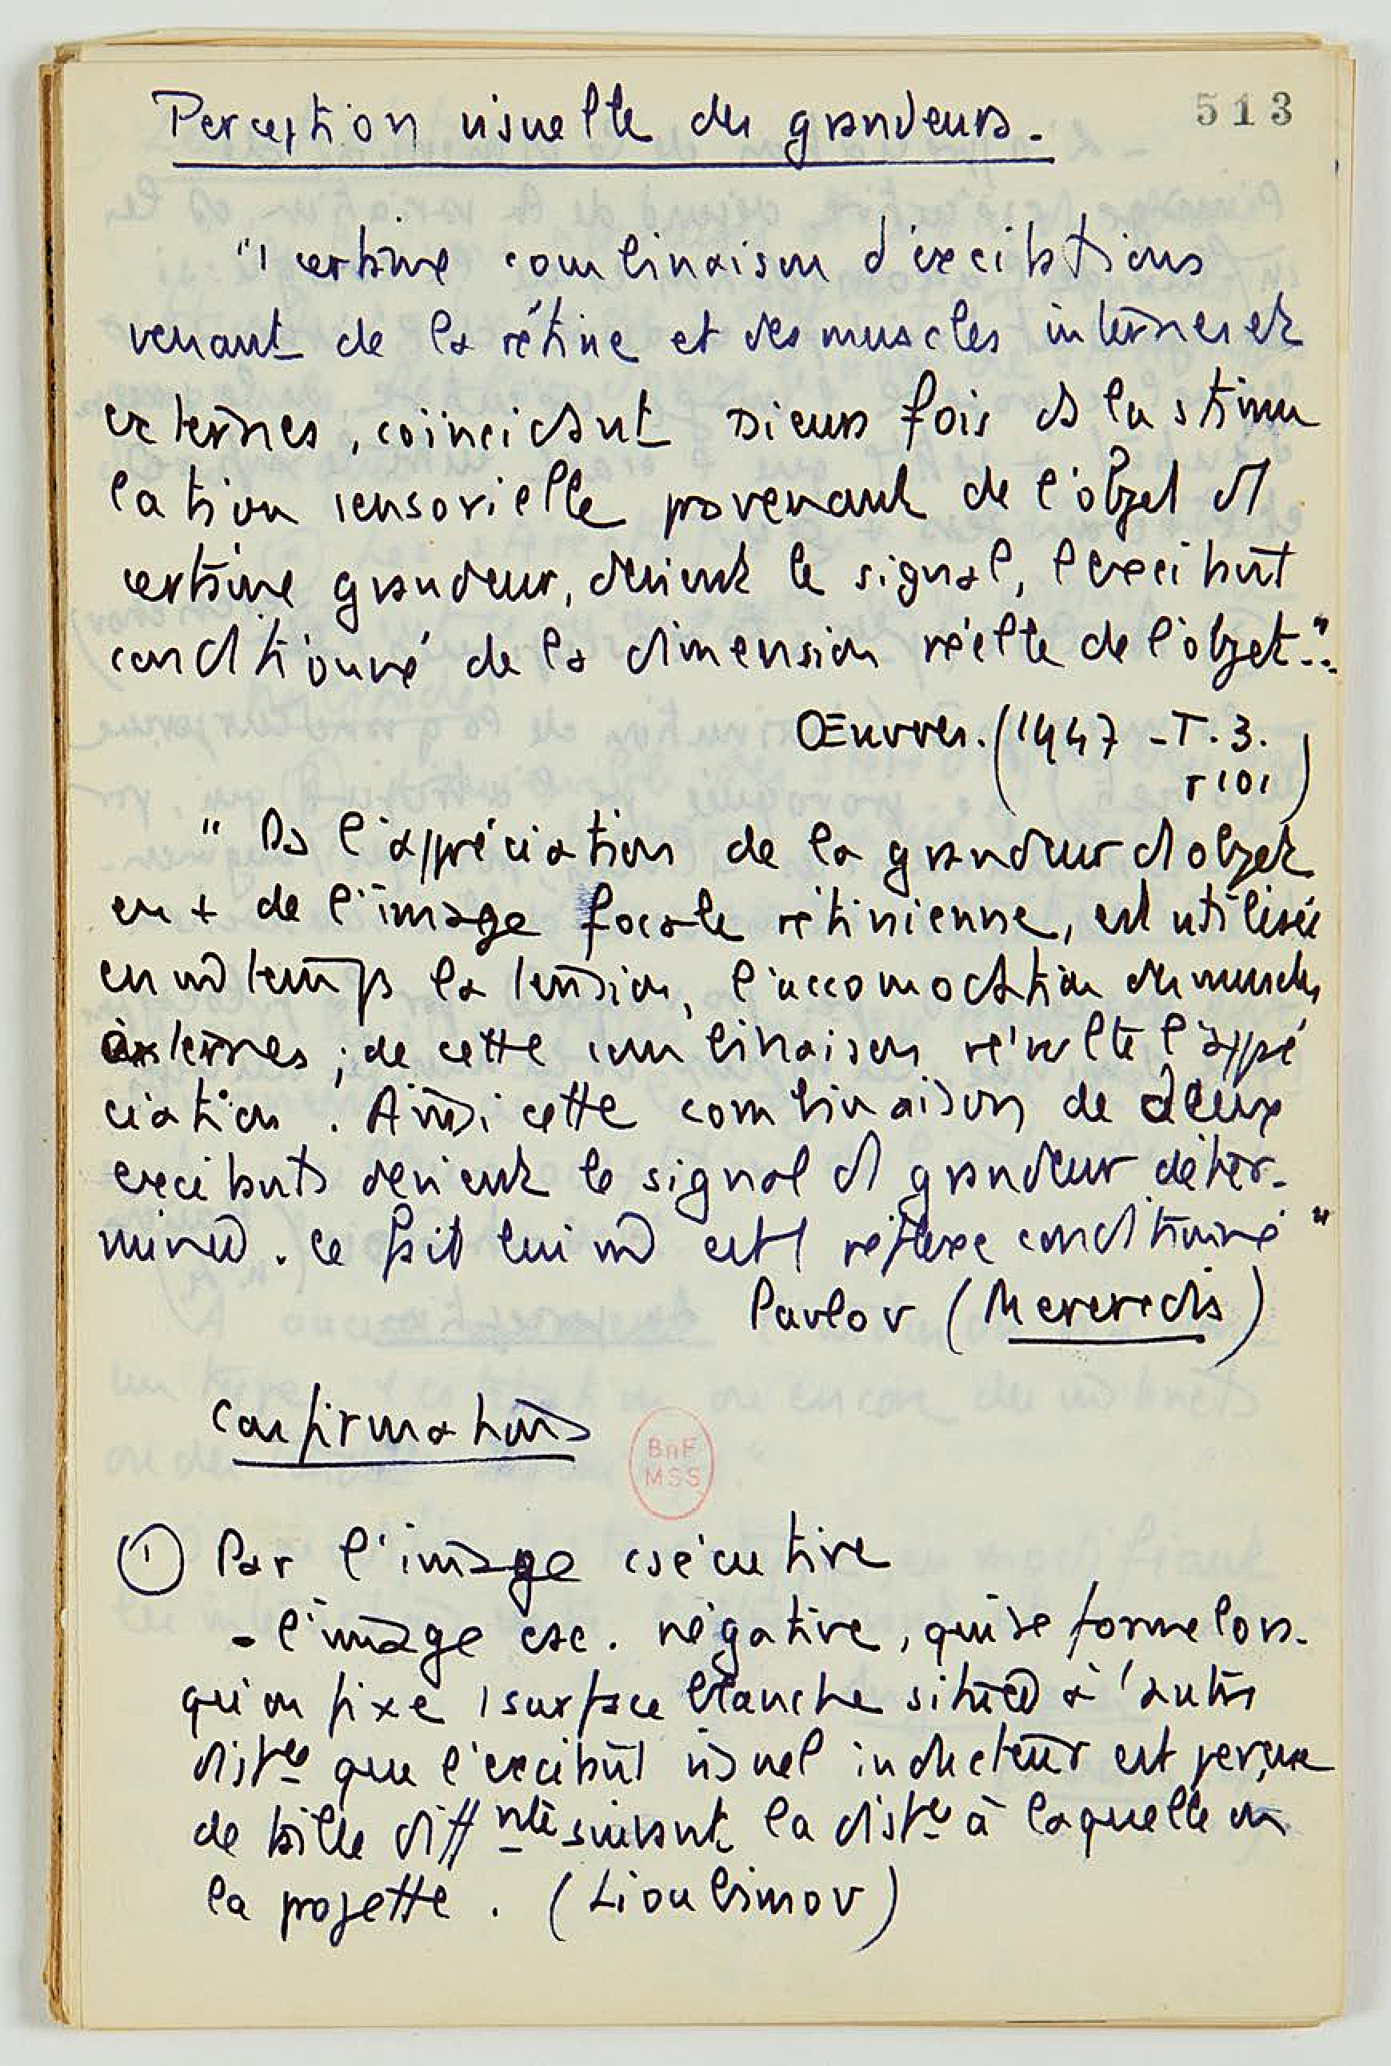 513
Perception visuelle des grandeurs.
"1 certaine combinaison d'excitations
venant de la rétine et des muscles internes et
externes, coïncidant sieurs fois à la stimu
lation sensorielle provenant de l'objet d1
certaine grandeur, devient le signal, l'excitant
conditionné de la dimension réelle de l'objet.."
Œuvres. (1947 - T. 3.
p 101)
" Ds l'appréciation de la grandeur d1 objet
en + de l'image focale rétinienne, est utilisée
en m temps la tension, l'accomodation des muscles
externes ; de cette combinaison résulte l'appré
ciation. Ainsi cette combinaison de deux
excitants devient le signal d1 grandeur déter-
minée. Ce fait lui m est 1 réflexe conditionné "
Pavlov (Mercredis)
Confirmations
BnF
MSS
① Par l'image csécutive
- l'image csc. négative, qui se forme lors-
qu'on fixe 1 surface blanche située à 1 autre
distce que l'excitant visuel inducteur est perçue
de taille diffnte suivant la distce à laquelle on
la projette. (Lioubimov)